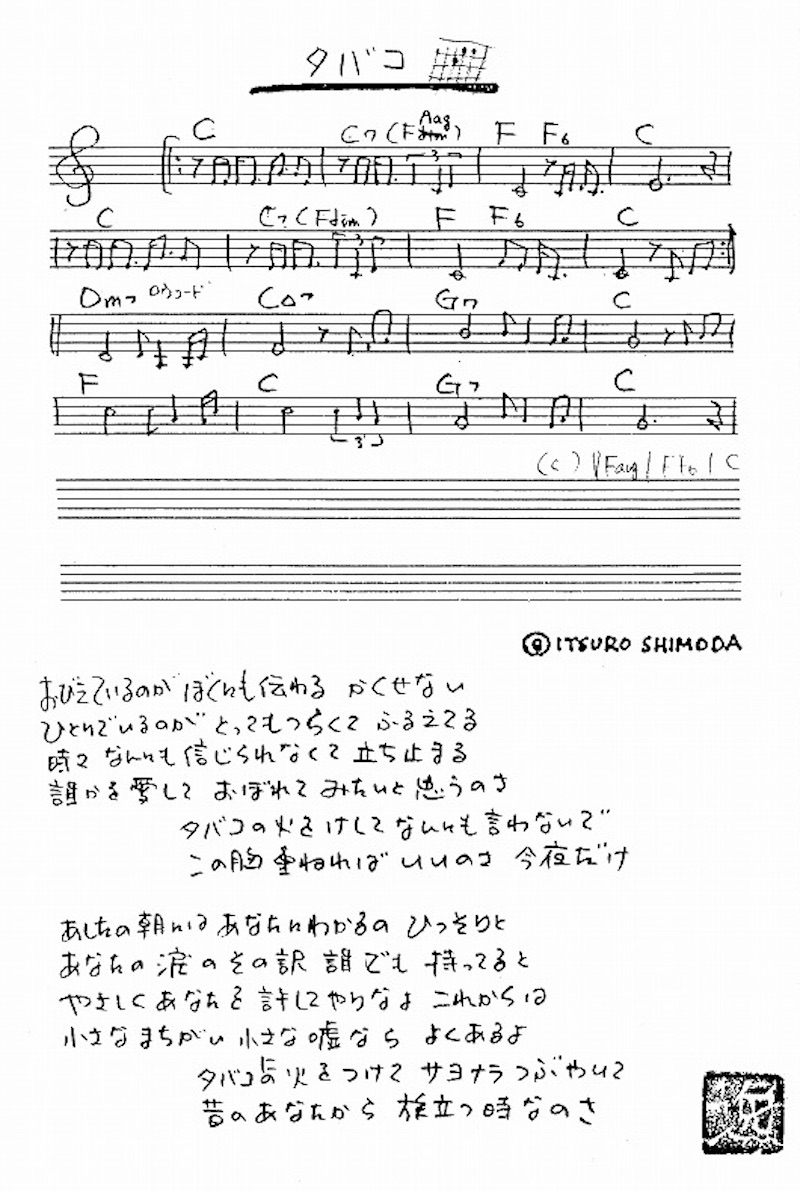 タバコ
C C7 (Fdim Aag) F F6 C
C C7 (Fdim) F F6 C
Dm7 ロウコード C△7 G7 C
3
F C G7 C
3
(C) Faug F F6 C
© ITSURO SHIMODA
おびえているのが ぼくにも伝わる かくせない
ひとりでいるのが とってもつらくて ふるえてる
時々 なんにも信じられなくて 立ち止まる
誰かを愛して おぼれて みたいと思うのさ
タバコの火をけしてなんにも言わないで
この胸重ねればいいのさ 今夜だけ
あしたの朝には あなたにわかるの ひっそりと
あなたの涙のその訳 誰でも 持ってると
やさしくあなたを許してやりなよ これからは
小さなまちがい 小さな嘘なら よくあるよ
タバコの火をつけて サヨナラ つぶやいて
昔のあなたから 旅立つ時なのさ